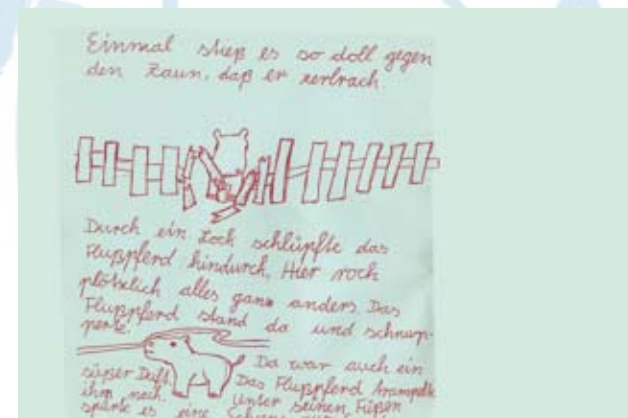 Einmal stieß es so doll gegen
den Zaun, daß er zerbrach.
Durch ein Loch schlüpfte das
Flußpferd hindurch. Hier roch
plötzlich alles ganz anders. Das
Flußpferd stand da und schnup-
perte.
Da war auch ein
süßer Duft. Das Flußpferd trampelte
ihm nach. Unter seinen Füßen
spürte es eine